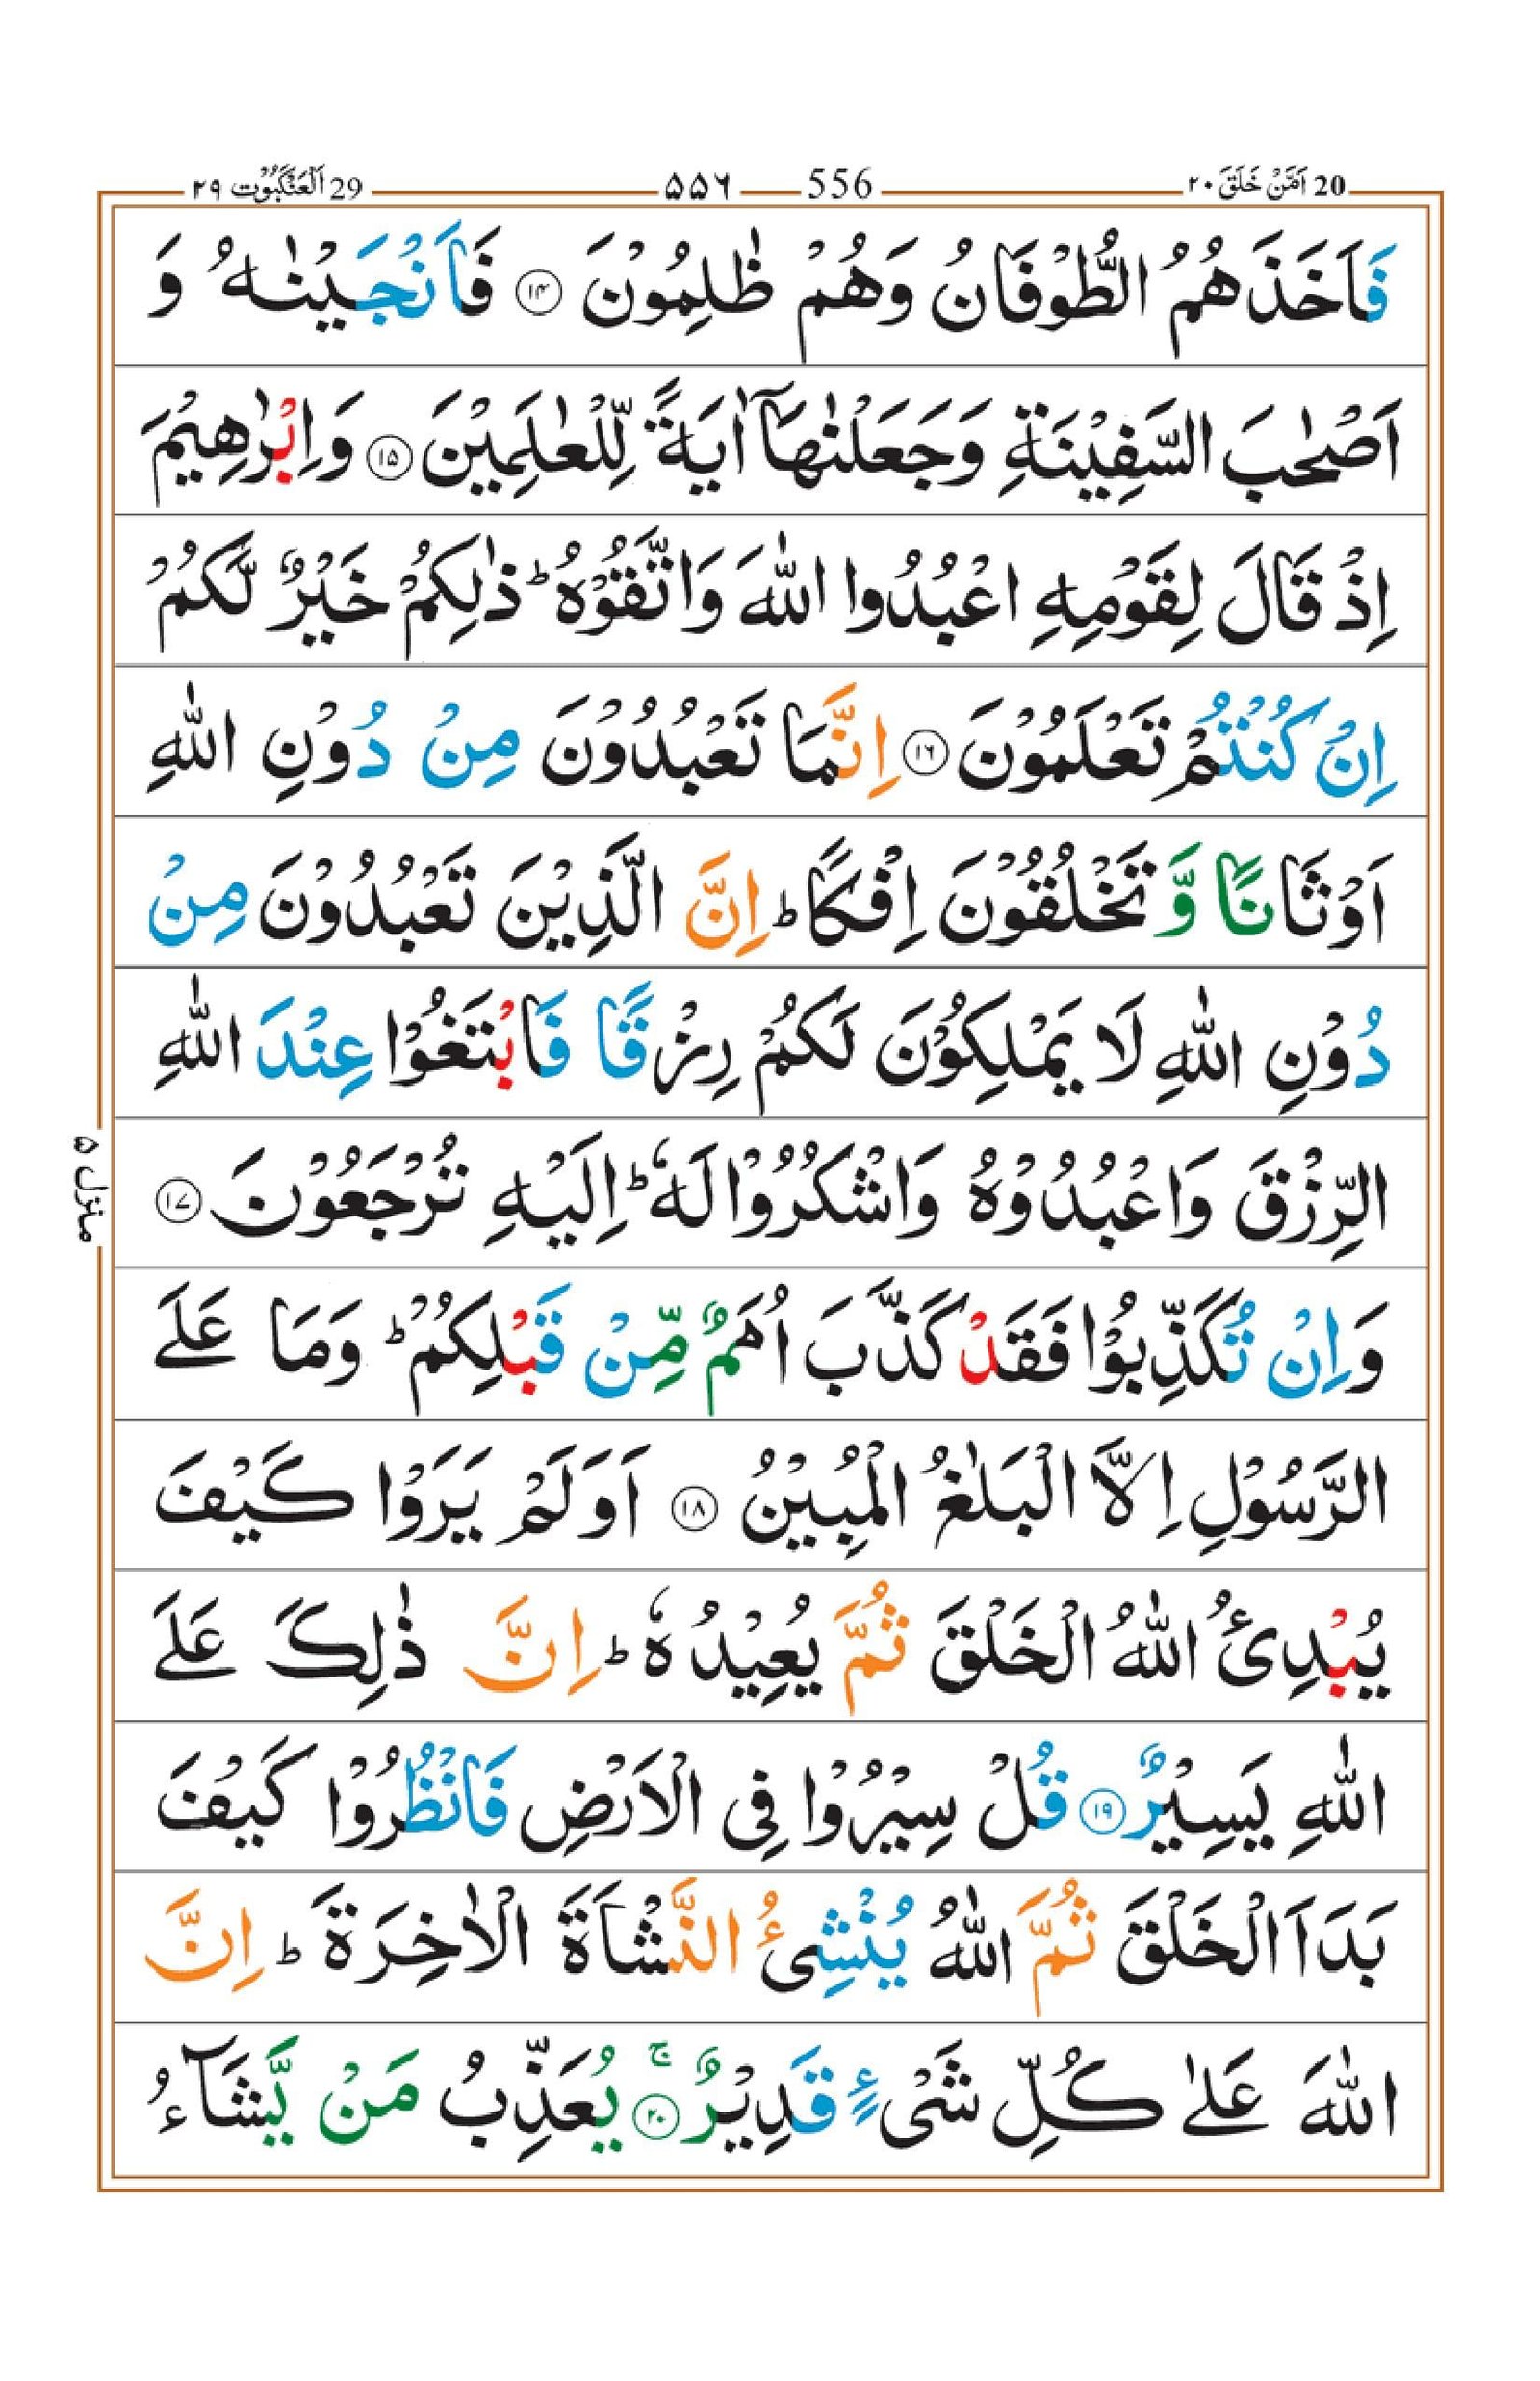 20 اَمَّنْ خَلَقَ ٢٠ 556 ۵۵۶ 29 اَلْعَنْكَبُوْت ٢٩
فَاَخَذَهُمُ الطُّوْفَانُ وَهُمْ ظٰلِمُوْنَ ۱۴ فَاَنْجَيْنٰهُ وَ
اَصْحٰبَ السَّفِيْنَةِ وَجَعَلْنٰهَاۤ اٰيَةً لِّلْعٰلَمِيْنَ ۱۵ وَاِبْرٰهِيْمَ
اِذْ قَالَ لِقَوْمِهِ اعْبُدُوا اللّٰهَ وَاتَّقُوْهُ ؕ ذٰلِكُمْ خَيْرٌ لَّكُمْ
اِنْ كُنْتُمْ تَعْلَمُوْنَ ۱۶ اِنَّمَا تَعْبُدُوْنَ مِنْ دُوْنِ اللّٰهِ
اَوْثَانًا وَّ تَخْلُقُوْنَ اِفْكًا ؕ اِنَّ الَّذِيْنَ تَعْبُدُوْنَ مِنْ
دُوْنِ اللّٰهِ لَا يَمْلِكُوْنَ لَكُمْ رِزْقًا فَابْتَغُوْا عِنْدَ اللّٰهِ
الرِّزْقَ وَاعْبُدُوْهُ وَاشْكُرُوْا لَهٗ ؕ اِلَيْهِ تُرْجَعُوْنَ ۱۷
منزل ۵
وَاِنْ تُكَذِّبُوْا فَقَدْ كَذَّبَ اُمَمٌ مِّنْ قَبْلِكُمْ ؕ وَمَا عَلَى
الرَّسُوْلِ اِلَّا الْبَلٰغُ الْمُبِيْنُ ۱۸ اَوَلَمْ يَرَوْا كَيْفَ
يُبْدِئُ اللّٰهُ الْخَلْقَ ثُمَّ يُعِيْدُهٗ ؕ اِنَّ ذٰلِكَ عَلَى
اللّٰهِ يَسِيْرٌ ۱۹ قُلْ سِيْرُوْا فِى الْاَرْضِ فَانْظُرُوْا كَيْفَ
بَدَاَ الْخَلْقَ ثُمَّ اللّٰهُ يُنْشِئُ النَّشْاَةَ الْاٰخِرَةَ ؕ اِنَّ
اللّٰهَ عَلٰى كُلِّ شَىْءٍ قَدِيْرٌ ۚ ۲۰ يُعَذِّبُ مَنْ يَّشَآءُ